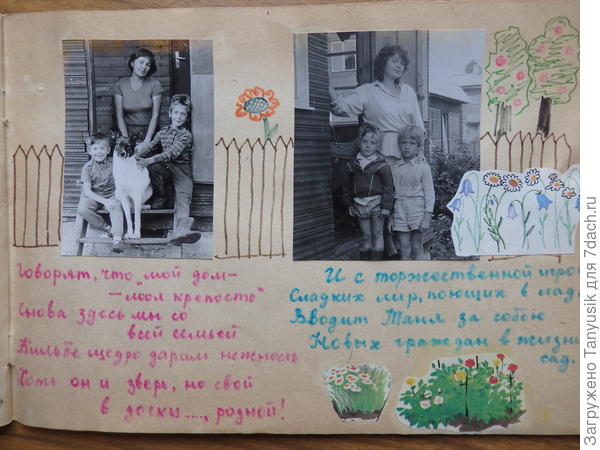 Говорят, что "мой дом –
– моя крепость"
Снова здесь мы со
всей семьей
Бильбе щедро дарим нежность
Хоть он и зверь, но свой
в доски...., родной!
И с торжественной игро
Сладких лир, поющих в лад
Вводит Таня за собою
Новых граждан в жизни
сад.
Загружено Tanyusik для 7dach.ru